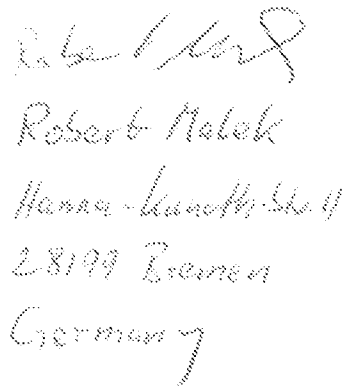 Robert Malek
Hanna-Kunath-Str. 11
28199 Bremen
Germany